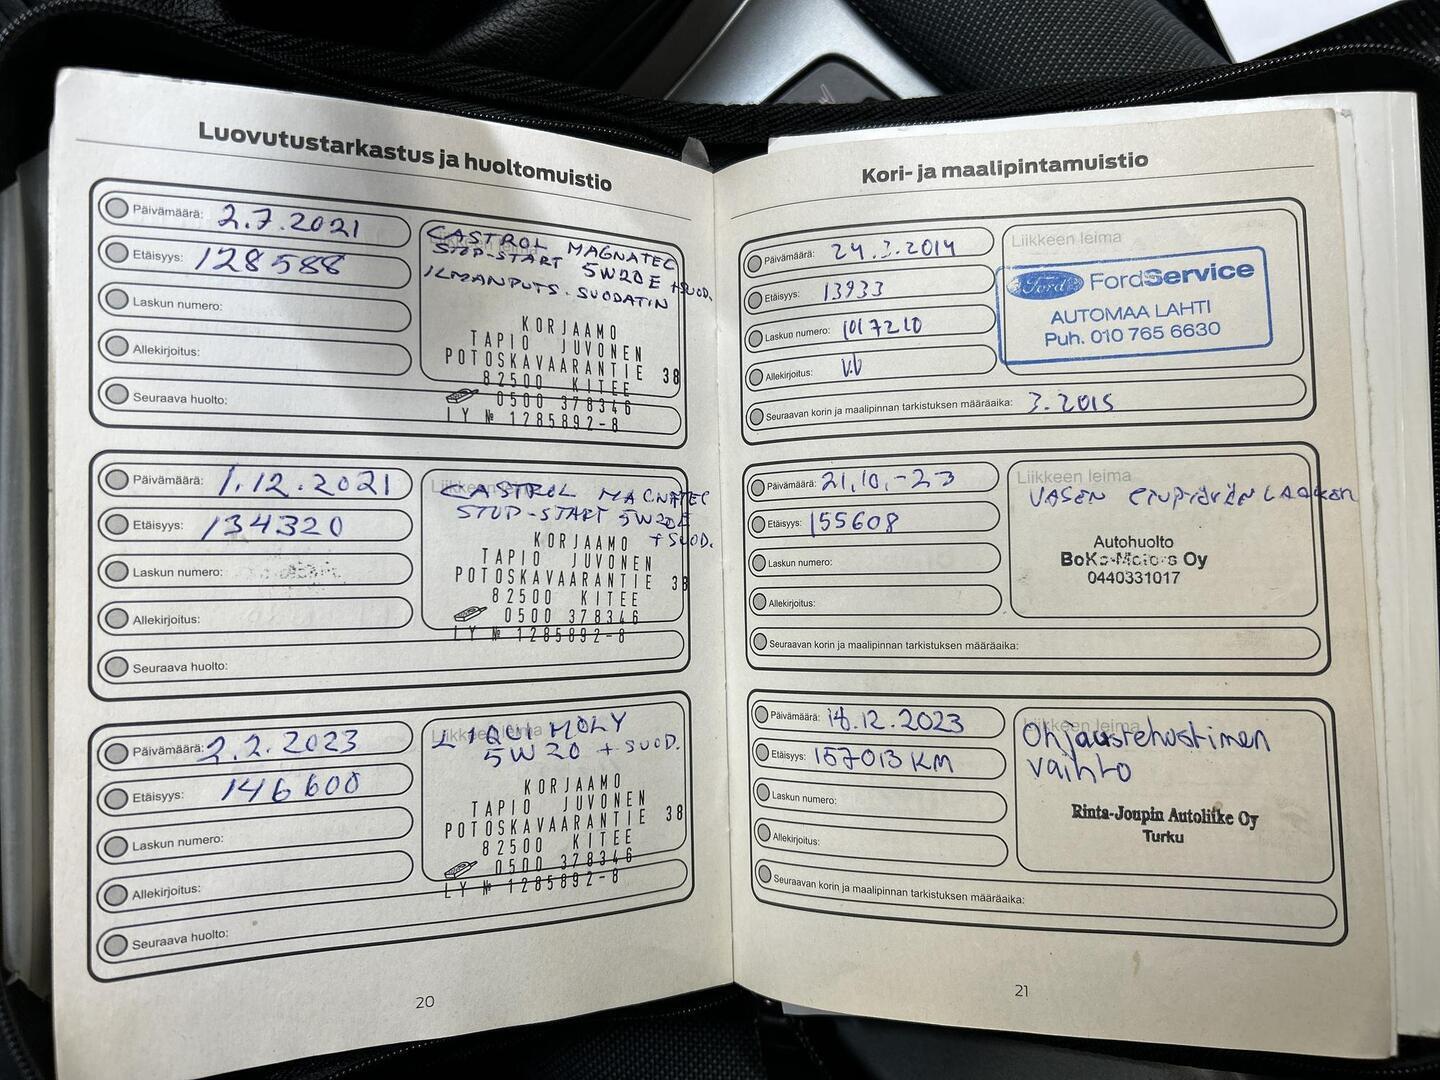 Luovutustarkastus ja huoltomuistio
Päivämäärä: 2.7.2021
Etäisyys: 128588
Laskun numero:
Allekirjoitus:
Seuraava huolto:
CASTROL MAGNATEC
STOP-START 5W20E +SUOD.
ILMANPUTS. SUODATIN
KORJAAMO
TAPIO JUVONEN
POTOSKAVAARANTIE 38
82500 KITEE
0500 378346
LY № 1285892-8
Päivämäärä: 1.12.2021
Etäisyys: 134320
Laskun numero:
Allekirjoitus:
Seuraava huolto:
Liikkeen leima
CASTROL MAGNATEC
STOP-START 5W20E
+ SUOD.
KORJAAMO
TAPIO JUVONEN
POTOSKAVAARANTIE 38
82500 KITEE
0500 378346
LY № 1285892-8
Päivämäärä: 2.2.2023
Etäisyys: 146600
Laskun numero:
Allekirjoitus:
Seuraava huolto:
Liikkeen leima
LIQUI MOLY
5W20 + SUOD.
KORJAAMO
TAPIO JUVONEN
POTOSKAVAARANTIE 38
82500 KITEE
0500 378346
LY № 1285892-8
20
Kori- ja maalipintamuistio
Päivämäärä: 24.3.2014
Etäisyys: 13933
Laskun numero: 1017210
Allekirjoitus:
Seuraavan korin ja maalipinnan tarkistuksen määräaika: 3.2015
Liikkeen leima
Ford FordService
AUTOMAA LAHTI
Puh. 010 765 6630
Päivämäärä: 21,10,-23
Etäisyys: 155608
Laskun numero:
Allekirjoitus:
Seuraavan korin ja maalipinnan tarkistuksen määräaika:
Liikkeen leima
VASEN
Autohuolto
BoKo-Motors Oy
0440331017
Päivämäärä: 18.12.2023
Etäisyys: 157013 KM
Laskun numero:
Allekirjoitus:
Seuraavan korin ja maalipinnan tarkistuksen määräaika:
Liikkeen leima
Ohjaustehostimen
vaihto
Rinta-Joupin Autoliike Oy
Turku
21